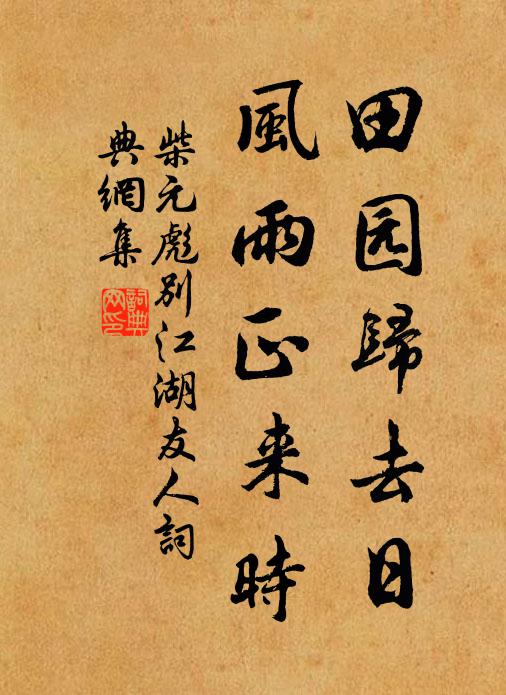 田园歸去日
風雨正来時
柴元彪别江湖友人詞
典網集
詞典
网印